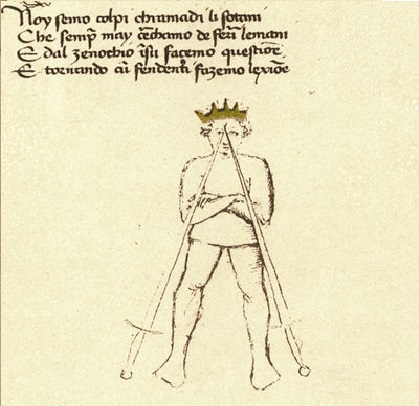 Noy semo colpi chiamadi li sotani
Che semp̄ may c̄rchamo de feri lemani
E dal zenochio ī su façemo questiōe
E tornando cū fendenti fazemo lexiōe